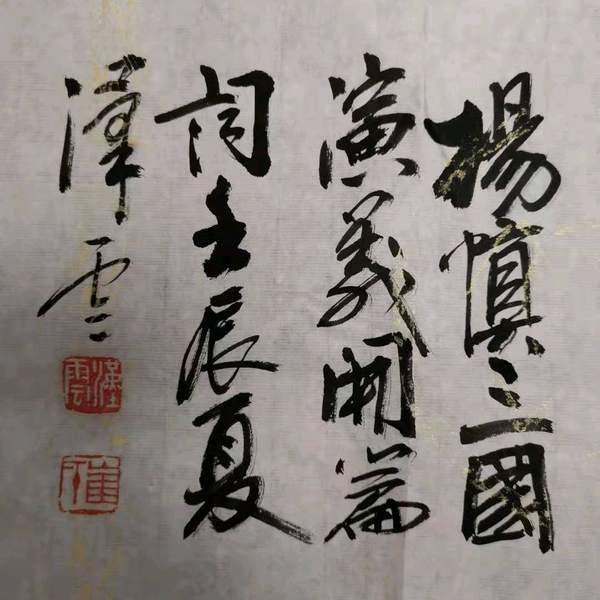 楊慎三國
演義開篇
詞壬辰夏
漢雲
漢雲